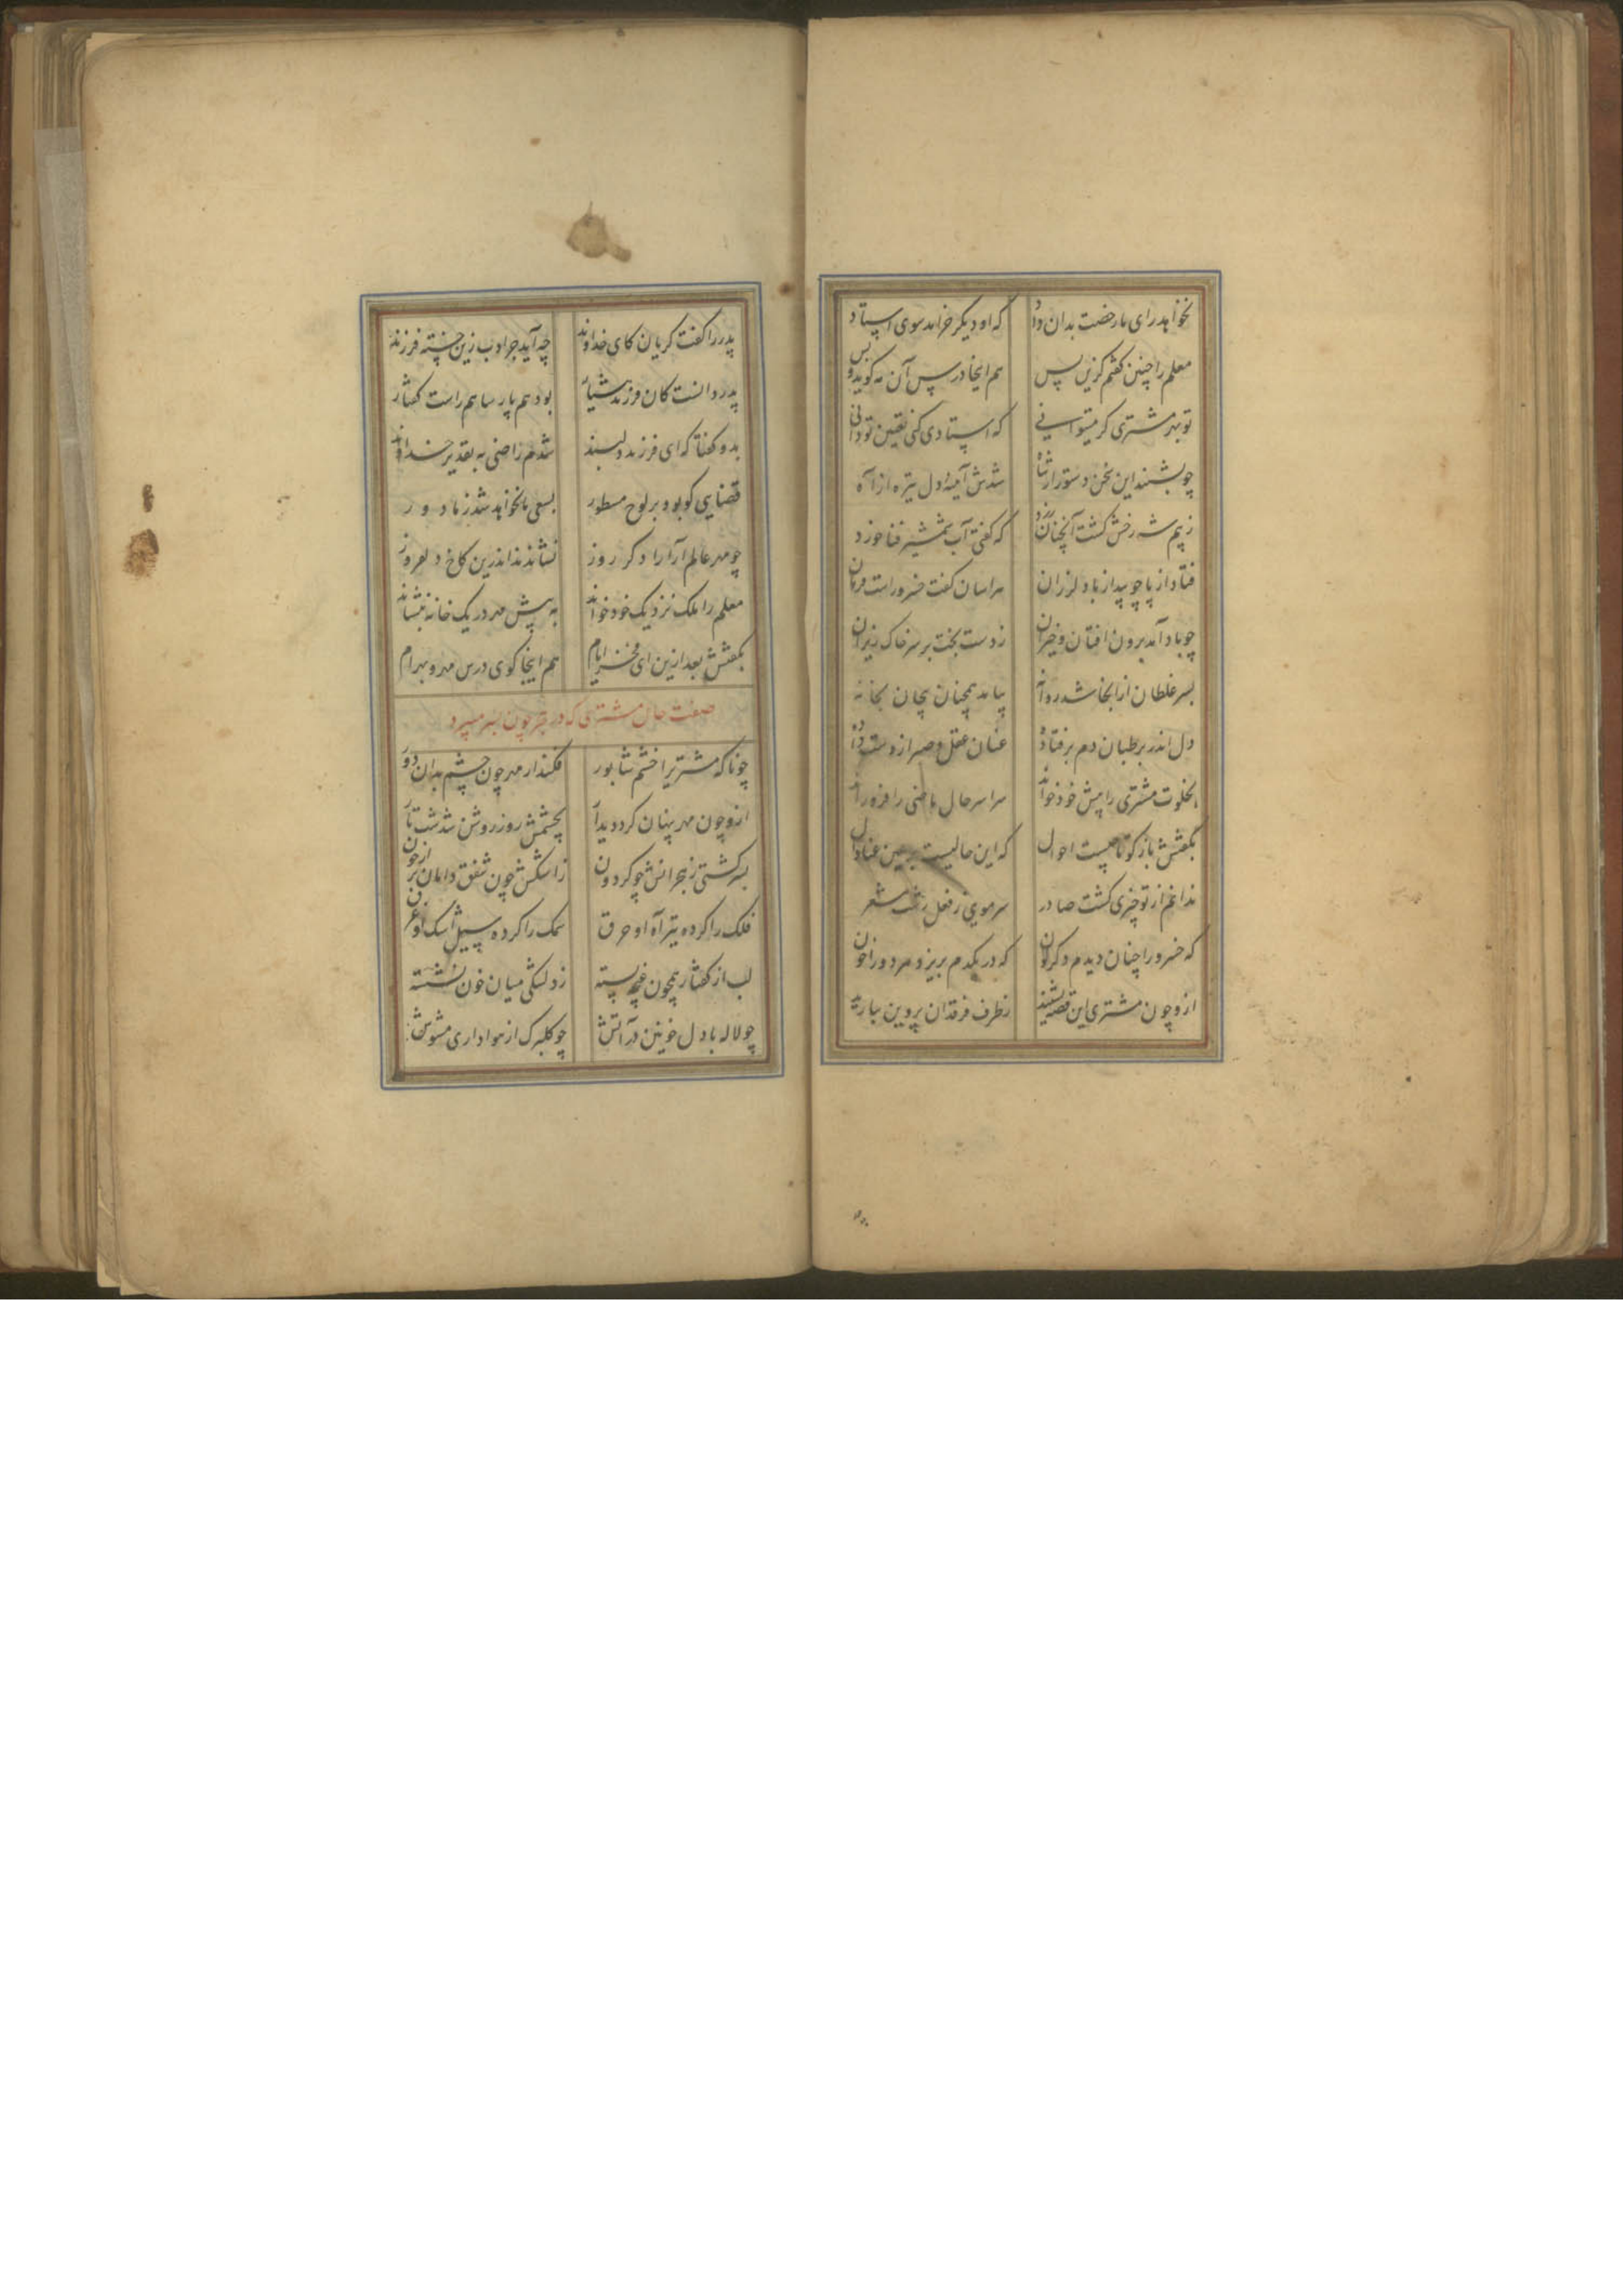 نخواهد رای ما رخصت بدان داد که او دیگر خرامد سوی استاد
معلم را چنین گفتم کزین پس هم اینجا درس آن مه گوید و بس
تو بهر مشتری گر میتوانی که استادی کنی تعیین تو دانی
چو بشنید این سخن دستور از شاه شدش آیینه دل تیره از آه
ز بیم شه رخش گشت آنچنان زرد که گفتی آب شمشیر فنا خورد
فتاد از پا چو بید از باد لرزان هراسان گفت خسرو راست فرمان
چو باد آمد برون افتان و خیزان ز دست بخت بر سر خاک ریزان
بسر غلطان از انجا شد روانه بیامد همچنان پیچان بخانه
دل اندر بر طپان دم بر فتاده عنان عقل و صبر از دست داده
بخلوت مشتری را پیش خود خواند سراسر حال ماضی را فرو راند
بگفتش باز گو تا چیست احوال که این حالیست بر من
ندانم از تو چیزی گشت صادر سر مویی ز فعل زشت مشعر
که خسرو را چنان دیدم دگرگون که در یکدم بریزد مر دو را خون
ازو چون مشتری این قصه بشنید ز طرف فرقدان پروین ببارید
پدر را گفت گریان کای خداوند چه آید جز ادب زین خسته فرزند
پدر دانست کان فرزند هشیار بود هم پارسا هم راست گفتار
بدو گفتا که ای فرزند دلبند شدم راضی به تقدیر خداوند
قضایی کو بود بر لوح مسطور بسعی ما نخواهد شد ز ما دور
چو مهر عالم آرا را دگر روز نشاندند اندرین کاخ دلفروز
معلم را ملک نزدیک خود خواند به پیش مهر در یک خانه بنشاند
بگفتش بعد ازین ای فخر ایام هم اینجا گوی درس مهر و بهرام
صفت حال مشتری که در هجر چون بسر میبرد
چو ناگه مشتری را خشم شاپور فکند از مهر چون چشم بدان دور
ازو چون مهر پنهان کرد دیدار بچشمش روز روشن شد شب تار
بسر گشتی ز هجرانش چو گردون ز اشکش چون شفق دامان پر از خون
فلک را کرده تیر آه او حرق سمک را کرده سیل اشک او غرق
لب از گفتار همچون غنچه بسته ز دلتنگی میان خون نشسته
چو لاله با دل خونین در آتش چو گلبرگ از هواداری مشوش